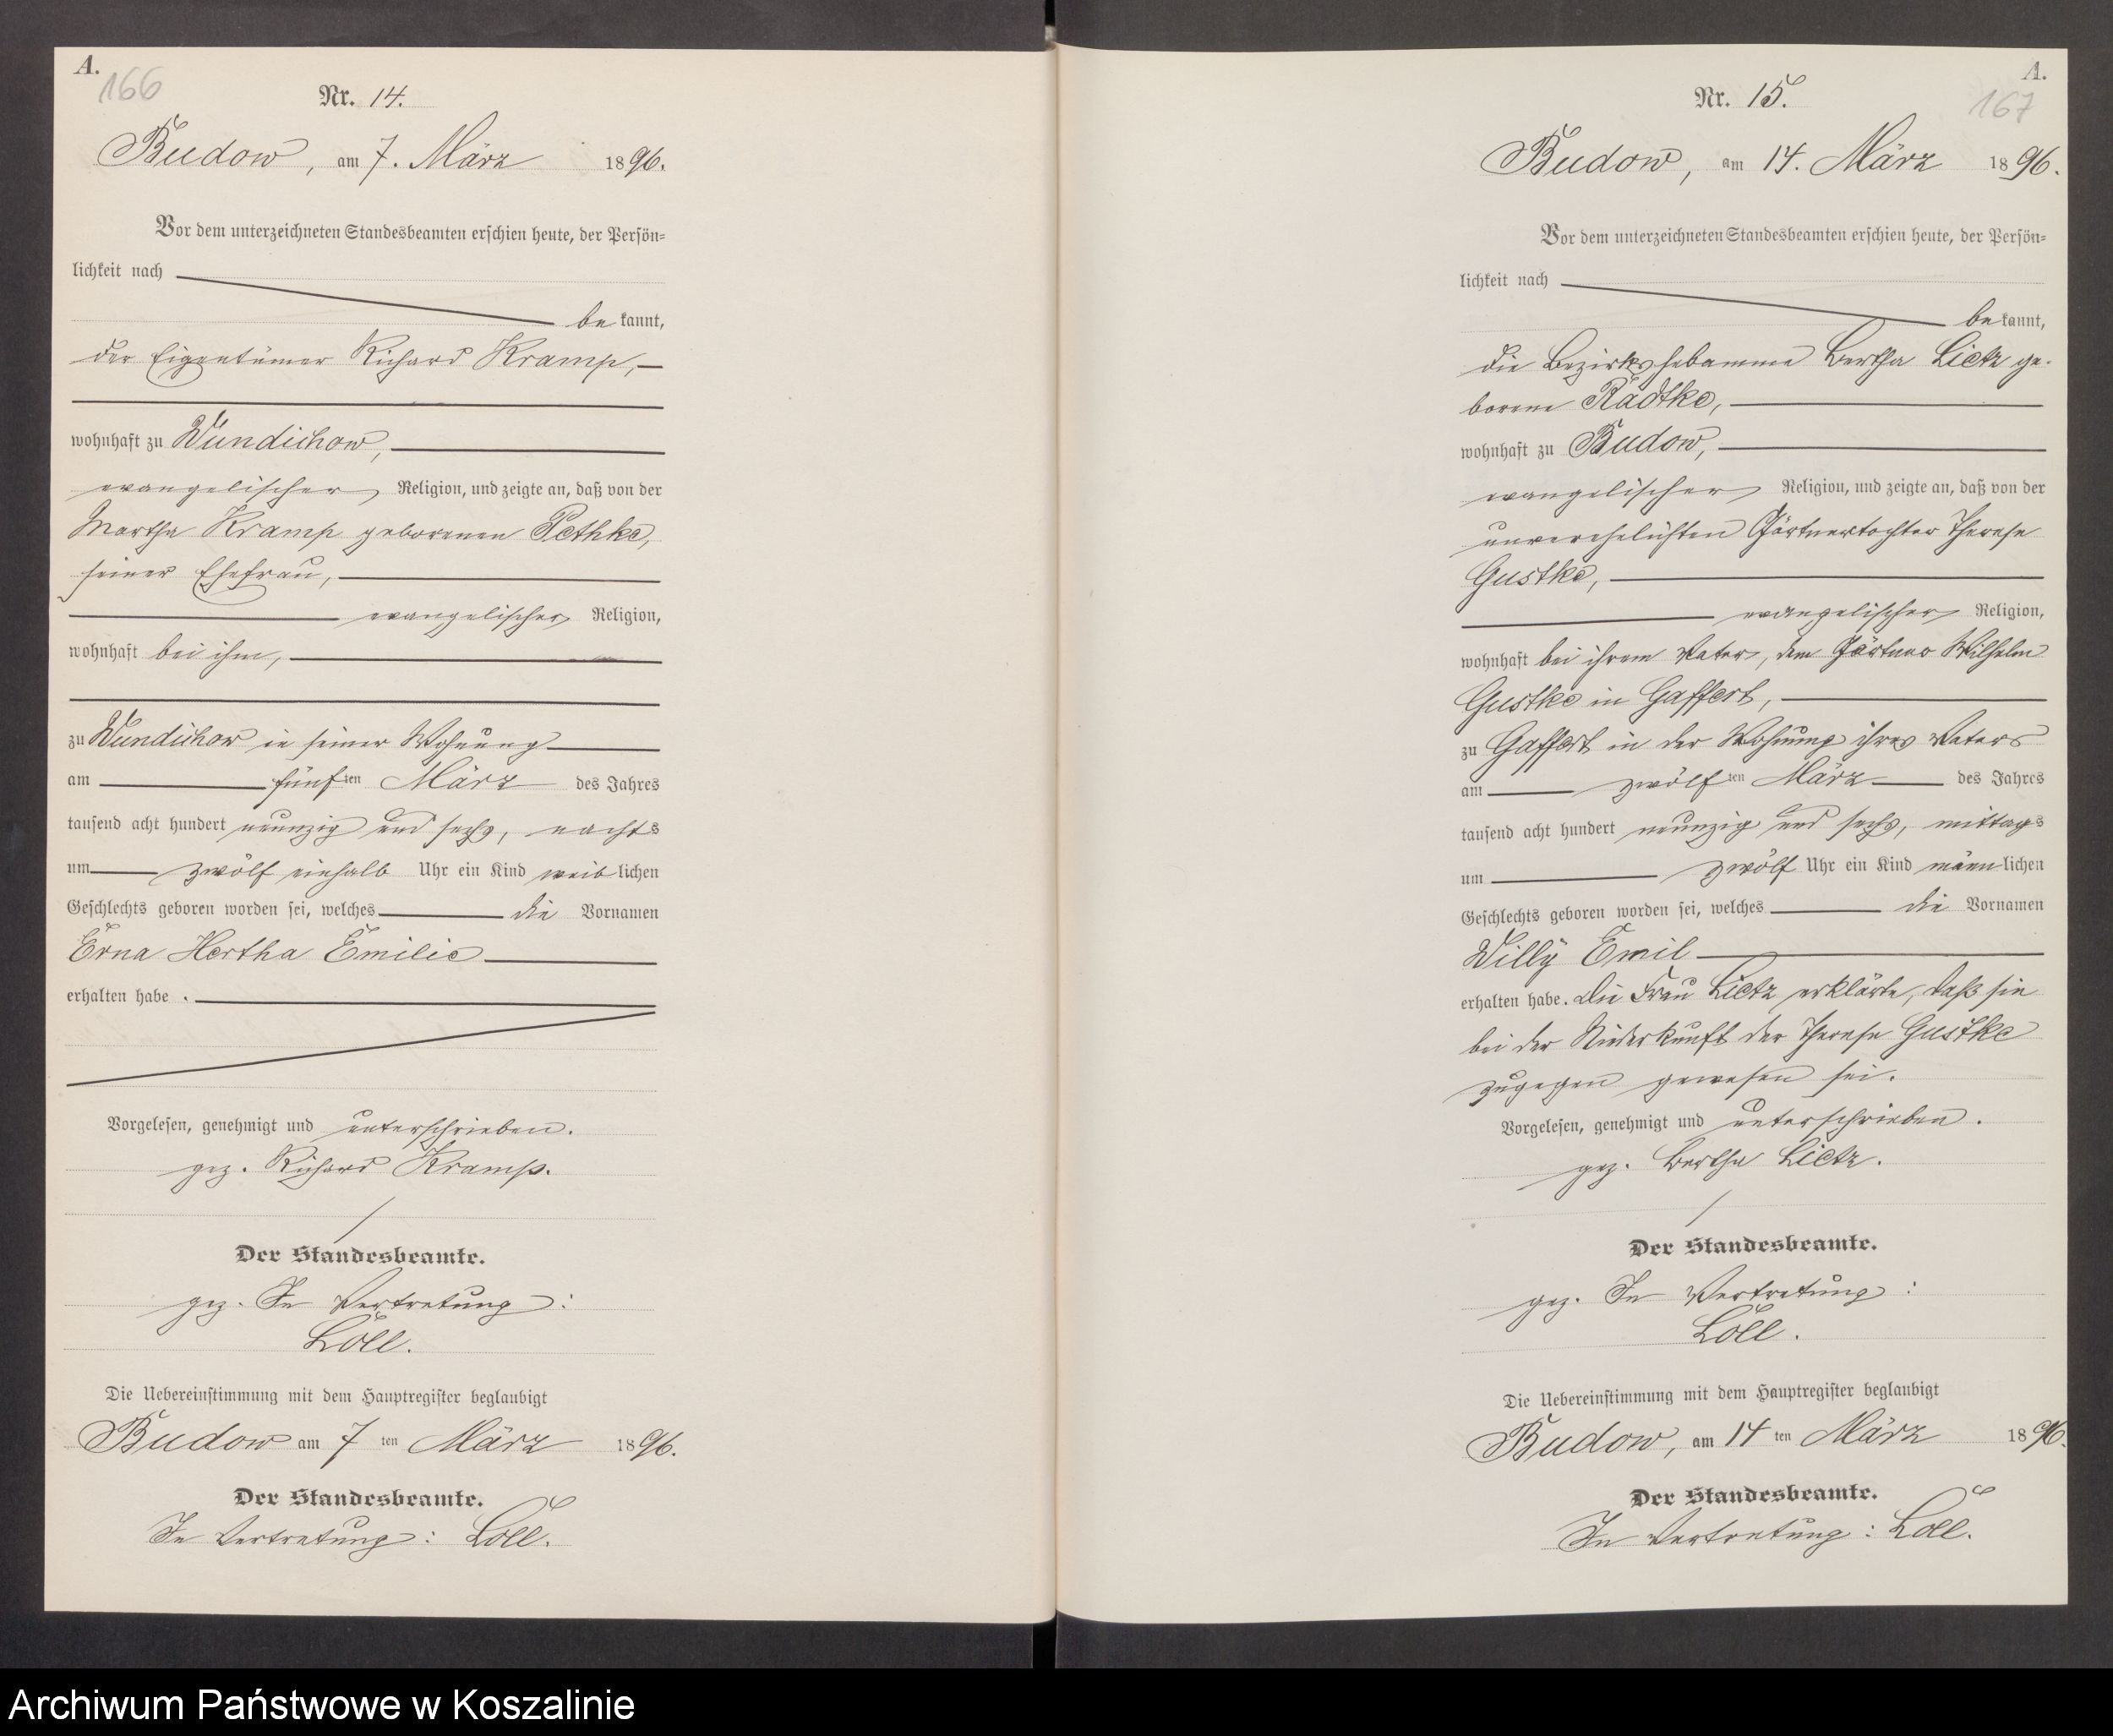 A.
166
Nr. 14.
Budow, am 7. März 1896.
Vor dem unterzeichneten Standesbeamten erschien heute, der Persön-
lichkeit nach
bekannt,
der Eigentümer Richard Kramp,
wohnhaft zu Wundichow,
evangelischer Religion, und zeigte an, daß von der
Martha Kramp geborenen Pethke,
seiner Ehefrau,
evangelischer Religion,
wohnhaft bei ihm,
zu Wundichow in seiner Wohnung
am fünften März des Jahres
tausend acht hundert neunzig und sechs, nachts
um zwölf einhalb Uhr ein Kind weiblichen
Geschlechts geboren worden sei, welches die Vornamen
Erna Hertha Emilie
erhalten habe.
Vorgelesen, genehmigt und unterschrieben.
gez. Richard Kramp.
Der Standesbeamte.
gez. In Vertretung:
Löll.
Die Uebereinstimmung mit dem Hauptregister beglaubigt
Budow am 7ten März 1896.
Der Standesbeamte.
In Vertretung: Löll.
A.
167
Nr. 15.
Budow, am 14. März 1896.
Vor dem unterzeichneten Standesbeamten erschien heute, der Persön-
lichkeit nach
bekannt,
die Bezirkshebamme Bertha Lietz ge-
borene Radtke,
wohnhaft zu Budow,
evangelischer Religion, und zeigte an, daß von der
unverehelichten Gärtnertochter Therese
Gustke,
evangelischer Religion,
wohnhaft bei ihrem Vater, dem Gärtner Wilhelm
Gustke in Gaffert,
zu Gaffert in der Wohnung ihres Vaters
am zwölften März des Jahres
tausend acht hundert neunzig und sechs, mittags
um zwölf Uhr ein Kind männlichen
Geschlechts geboren worden sei, welches die Vornamen
Willy Emil
erhalten habe. Die Frau Lietz erklärte, daß sie
bei der Niederkunft der Therese Gustke
zugegen gewesen sei.
Vorgelesen, genehmigt und unterschrieben.
gez. Bertha Lietz.
Der Standesbeamte.
gez. In Vertretung:
Löll.
Die Uebereinstimmung mit dem Hauptregister beglaubigt
Budow, am 14ten März 1896.
Der Standesbeamte.
In Vertretung: Löll.
Archiwum Państwowe w Koszalinie